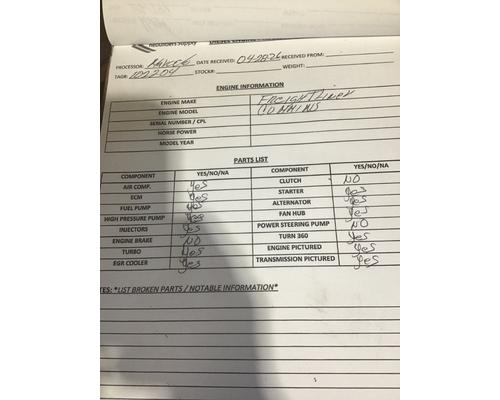 Rebuilders Supply
PROCESSOR: DATE RECEIVED: 042826 RECEIVED FROM:
TAG#: 102204 STOCK#: WEIGHT:
ENGINE INFORMATION
ENGINE MAKE FREIGHTLINER
ENGINE MODEL CUMMINS
SERIAL NUMBER / CPL
HORSE POWER
MODEL YEAR
PARTS LIST
COMPONENT YES/NO/NA COMPONENT YES/NO/NA
AIR COMP. yes CLUTCH NO
ECM yes STARTER yes
FUEL PUMP yes ALTERNATOR yes
HIGH PRESSURE PUMP yes FAN HUB yes
INJECTORS yes POWER STEERING PUMP NO
ENGINE BRAKE NO TURN 360 yes
TURBO yes ENGINE PICTURED yes
EGR COOLER yes TRANSMISSION PICTURED yes
TES: *LIST BROKEN PARTS / NOTABLE INFORMATION*